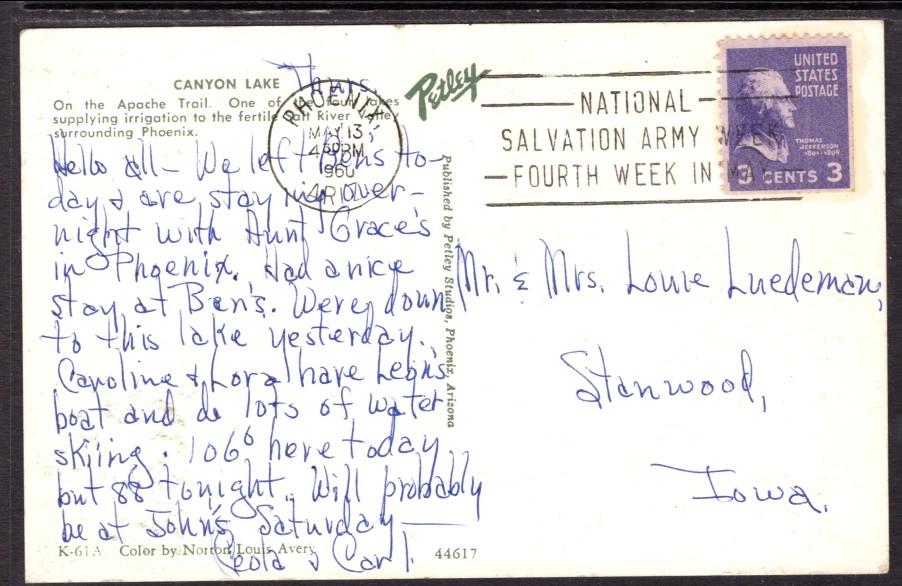 CANYON LAKE
Thurs.
On the Apache Trail. One of the four lakes
supplying irrigation to the fertile Salt River Valley
surrounding Phoenix.
Hello all - We left Bens to-
day & are staying over-
night with Aunt Grace's
in Phoenix. Had a nice
stay at Ben's. Were down
to this lake yesterday.
Caroline & Lora have Leon's
boat and do lots of water
skiing. 106° here today
but 88 tonight. Will probably
be at John's Saturday —
Leola & Carl.
K-61A Color by Norton Louis Avery 44617
Petley
Published by Petley Studios, Phoenix, Arizona
PHOENIX,
MAY 13
4 30 PM
1960
ARIZ.
NATIONAL
SALVATION ARMY WEEK
FOURTH WEEK IN MAY
UNITED
STATES
POSTAGE
THOMAS
JEFFERSON
1801-1809
3 CENTS 3
Mr. & Mrs. Louie Luedeman,
Stanwood,
Iowa.